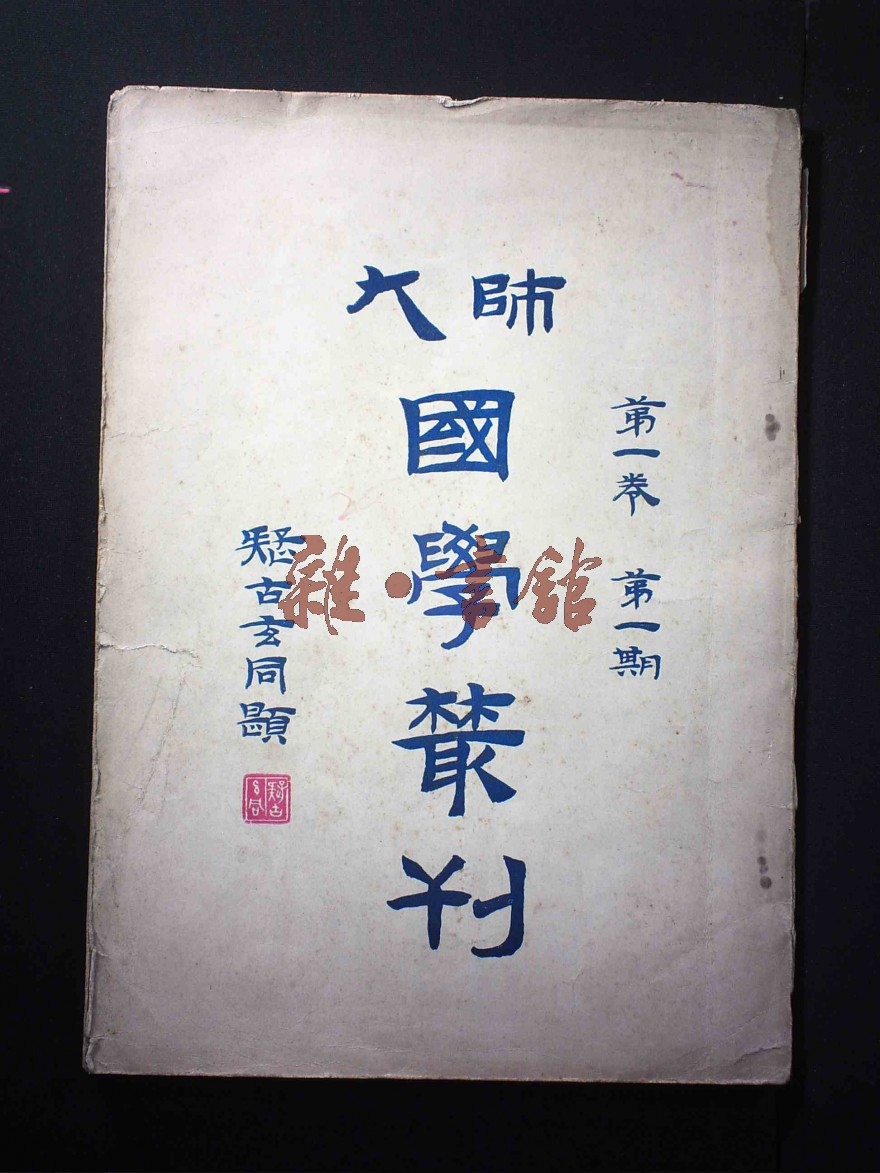 師大
國學叢刊
第一卷 第一期
疑古玄同題
疑古玄同
雜·書館